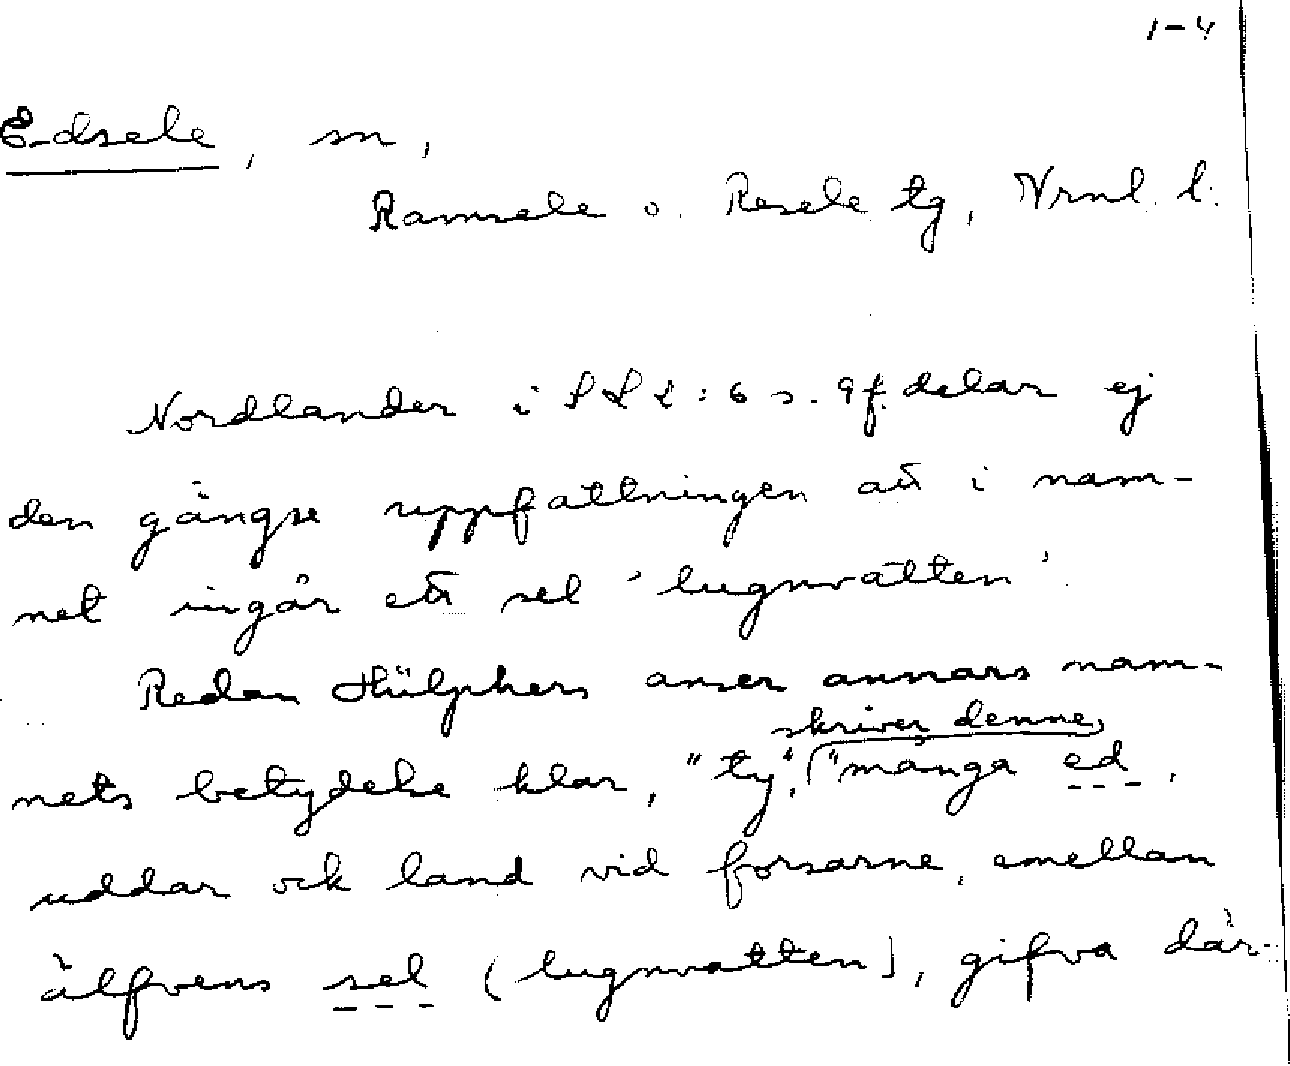 1-4
Edsele, sn,
Ramsele o. Resele tg, Vrnl. l.
Nordlander i SL 2:6 s. 9 f. delar ej
den gängse uppfattningen att i nam-
net ingår ett sel 'lugnvatten'.
Redan Hülphers anser annars nam-
skriver denne,
nets betydelse klar, "ty", "många ed,
uddar ock land vid forsarne, emellan
älfvens sel (lugnvatten), gifva där-